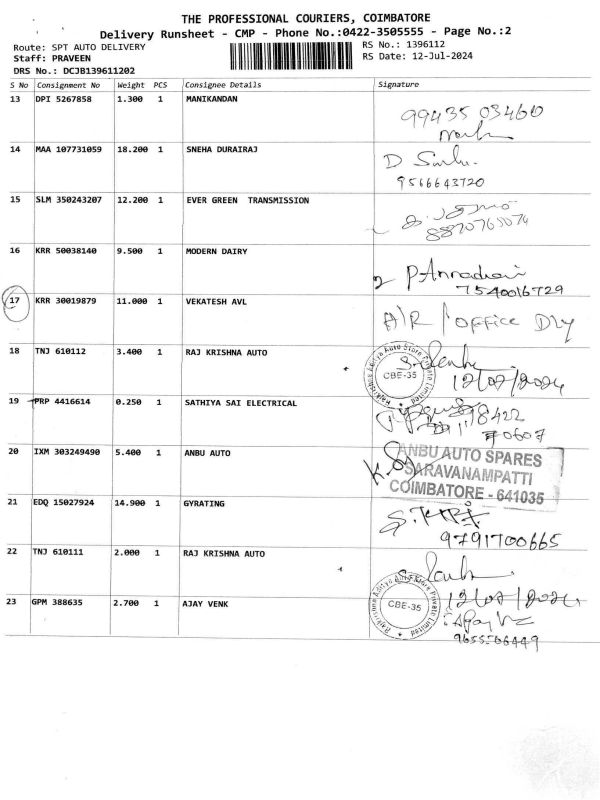 THE PROFESSIONAL COURIERS, COIMBATORE
Delivery Runsheet - CMP - Phone No.:0422-3505555 - Page No.:2
Route: SPT AUTO DELIVERY
RS No.: 1396112
Staff: PRAVEEN
RS Date: 12-Jul-2024
DRS No.: DCJB139611202
S No Consignment No Weight PCS Consignee Details Signature
13 DPI 5267858 1.300 1 MANIKANDAN
99435 03460
14 MAA 107731059 18.200 1 SNEHA DURAIRAJ
9566643720
15 SLM 350243207 12.200 1 EVER GREEN TRANSMISSION
8870765074
16 KRR 50038140 9.500 1 MODERN DAIRY
P Annadurai
7540016729
17 KRR 30019879 11.000 1 VEKATESH AVL
A/R / office Dly
18 TNJ 610112 3.400 1 RAJ KRISHNA AUTO
Rajkrishna Aditya Auto Store Private Limited
CBE-35
12/07/2024
19 PRP 4416614 0.250 1 SATHIYA SAI ELECTRICAL
78422
70607
20 IXM 303249490 5.400 1 ANBU AUTO
ANBU AUTO SPARES
SARAVANAMPATTI
COIMBATORE - 641035
21 EDQ 15027924 14.900 1 GYRATING
9791700665
22 TNJ 610111 2.000 1 RAJ KRISHNA AUTO
Rajkrishna Aditya Auto Store Private Limited
CBE-35
12/07/2024
23 GPM 388635 2.700 1 AJAY VENK
9655566449